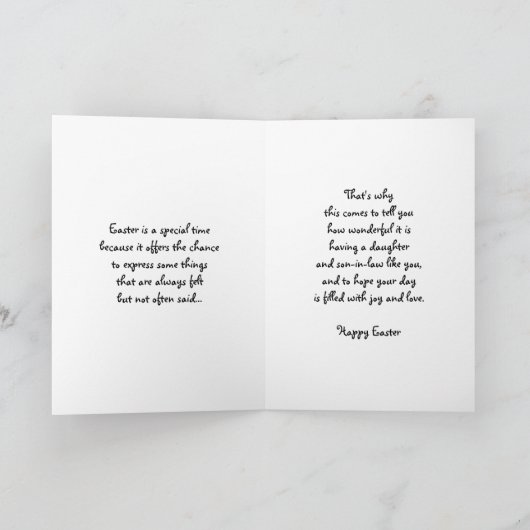 Easter is a special time
because it offers the chance
to express some things
that are always felt
but not often said...
That's why
this comes to tell you
how wonderful it is
having a daughter
and son-in-law like you,
and to hope your day
is filled with joy and love.
Happy Easter